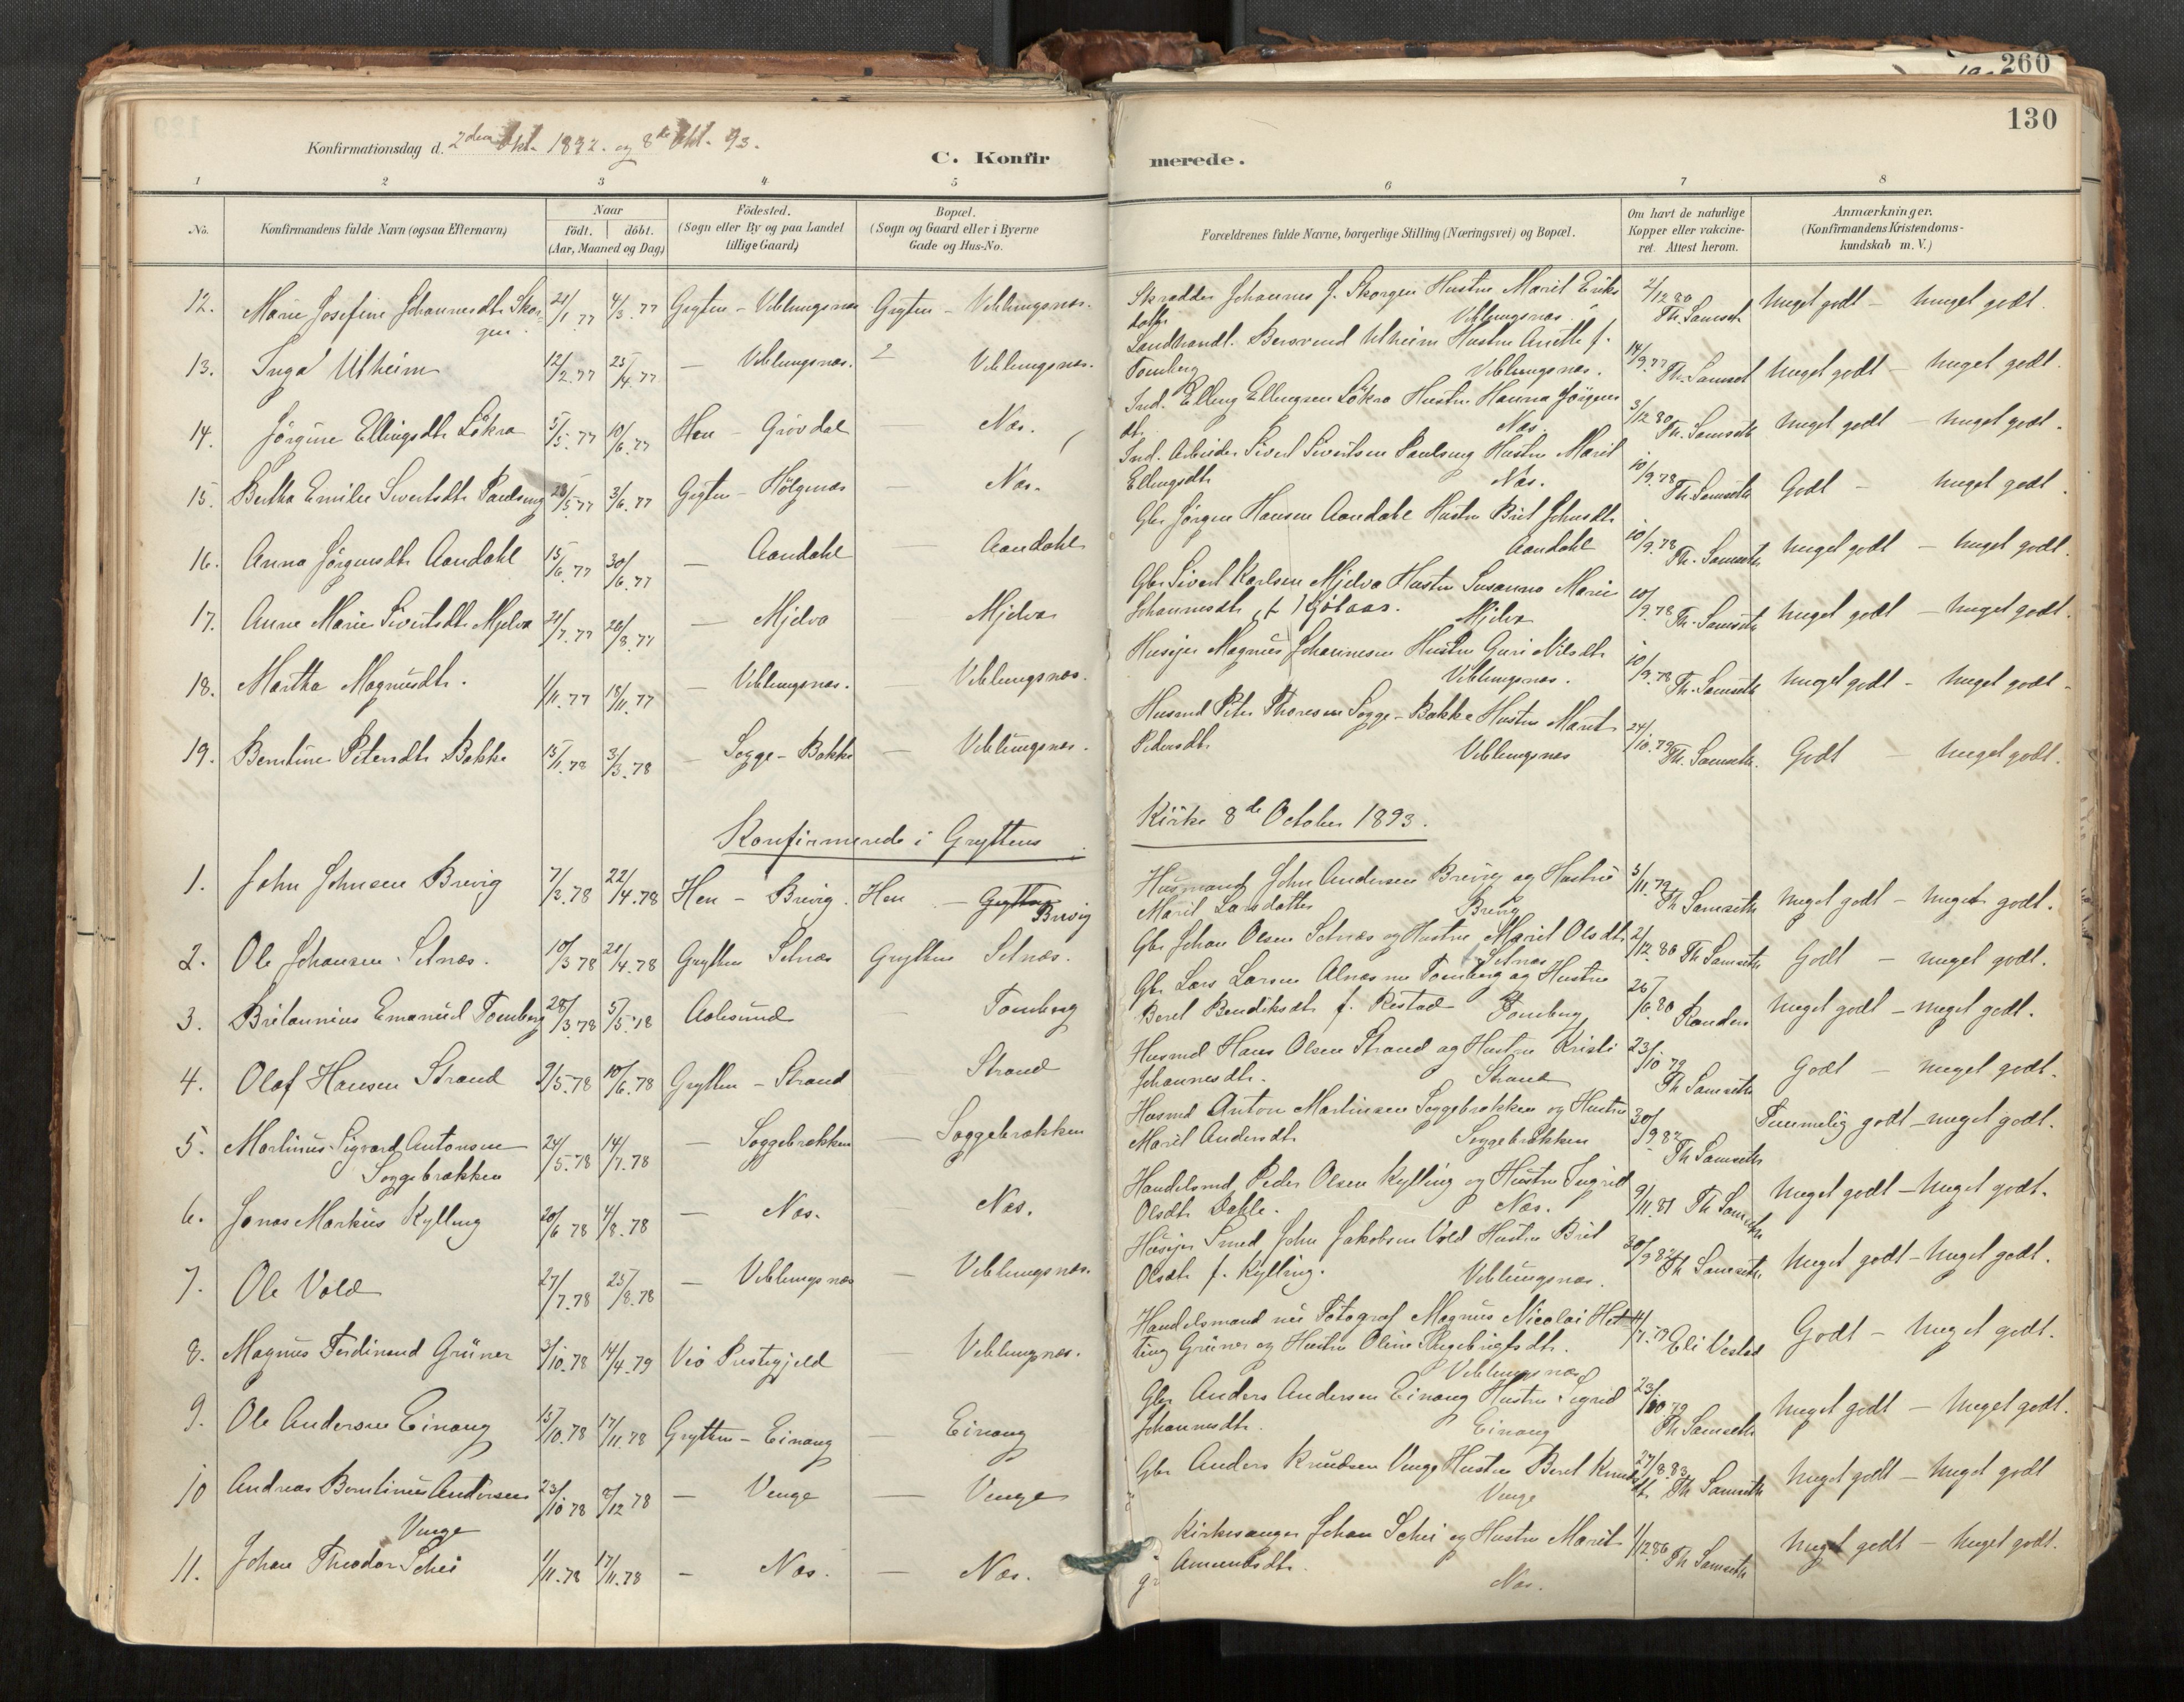 260
130
Konfirmationsdag d. 2den Okt. 1892. og 8de Okt. 93.
C. Konfirmerede.
1 2 3 4 5 6 7 8
No.
Konfirmandens fulde Navn (ogsaa Efternavn)
Naar
födt. döbt.
(Aar, Maaned og Dag)
Födested.
(Sogn eller By og paa Landet
tillige Gaard)
Bopæl.
(Sogn og Gaard eller i Byerne
Gade og Hus-No.
Forældrenes fulde Navne, borgerlige Stilling (Næringsvei) og Bopæl.
Om havt de naturlige
Kopper eller vakcine-
ret. Attest herom.
Anmærkninger.
(Konfirmandens Kristendoms-
kundskab m. V.)
12. Marie Josefine Johannesdtr Skor- 21/1.77 4/3.77 Grytten - Veblungsnæs Grytten - Veblungsnæs. Skrædder Johannes J. Skorgen Hustru Marit Eriks 2/12 80 Meget godt - meget godt.
gen. datter Veblungsnæs. Th. Samseth
13. Inga Utheim 12/2.77 25/4.77 — Veblungsnæs. Veblungsnæs. Landhandl. Bersvend Utheim Hustru Anette f. 14/9.77 Meget godt - meget godt.
Tomberg Veblungsnæs. Th. Samseth
14. Jørgine Ellingsdtr Løkra 5/5.77 10/6.77 Hen - Grövdal — Næs. Ind. Elling Ellingsen Løkra Hustru Hanna Jörgens 3/12 80 Meget godt - meget godt.
dtr. Næs. Th. Samseth
15. Bertha Emilie Sivertsdtr Paulseng 23/5.77 3/6.77 Grytten - Hölgenæs — Næs. Ind. Arbeider Sivert Sivertsen Paulseng Hustru Marit 10/9.78 Godt - meget godt.
Ellingsdtr Næs. Th. Samseth
16. Anna Jörgensdtr Aandahl 15/6.77 30/6.77 — Aandahl — Aandahl Gbr Jörgen Hansen Aandahl Hustru Brit Johnsdtr 10/9.78 Meget godt - meget godt.
Aandahl Th. Samseth
17. Anne Marie Sivertsdtr Mjelva 21/7.77 20/8.77 — Mjelva Mjelva Gbr Sivert Karlsen Mjelva Hustru Susanna Marie 10/9.78 Meget godt - meget godt.
Johannesdtr Mjelva Th. Samseth
18. Martha Magnusdtr. 1/11.77 18/11.77 — Veblungsnæs. — Veblungsnæs. Huseier Magnus Johannesen Hustru Guri Nilsdtr 10/9.78 Meget godt - meget godt.
Veblungsnæs. Th. Samseth
19. Berntine Petersdtr Bakke 3/3.78 — Sogge-Bakke — Veblungsnæs. Husmd Peter Thoresen Sogge-Bakke Hustru Marit 24/10.79 Godt - meget godt.
Pedersdtr. Veblungsnæs Th. Samseth.
Konfirmerede i Gryttens Kirke 8de October 1893.
1. John Johnsen Brevig 7/3.78 22/4.78 Hen - Brevig. Hen — Grytten Husmand John Andersen Brevig og Hustru 3/11.79 Meget godt - meget godt.
Brevig Marit Larsdatter Brevig Th Samseth
2. Ole Johansen Setnæs. 10/3 78 21/4.78 Grytten Setnæs Grytten Setnæs. Gbr Johan Olsen Setnæs og Hustru Marit Olsdtr 2/12.80 Th Samseth Godt - meget godt.
Setnæs
3. Britannius Emanuel Tomberg 28/3.78 5/5.78 Aalesund — Tomberg Gbr Lars Larsen Alnæs nu Tomberg og Hustru 26/6.80 Meget godt - meget godt.
Beret Bendiksdtr f. Rostad Tomberg Randers
4. Olaf Hansen Strand 2/5.78 10/6.78 Grytten - Strand Strand Husmd Hans Olsen Strand og Hustru Kristi 23/10 79 Godt - meget godt.
Johannesdtr. Strand Th Samseth
5. Martinus Sigvard Antonsen 24/5.78 14/7.78 — Soggebrækken — Soggebrækken Husmd Anton Martinsen Soggebrækken og Hustru 30/9 82 Temmelig godt - meget godt.
Soggebrækken Marit Andersdtr. Soggebrækken Th Samseth
6. Jonas Markus Kylling 20/6 78 4/8.78 — Næs. — Næs. Handelsmd Peder Olsen Kylling og Hustru Ingrid 9/11.81 Th Samseth Meget godt - meget godt.
Olsdtr Dahle. Næs.
7. Ole Vold 27/7.78 25/8.78 — Veblungsnæs — Veblungsnæs. Huseier Smed John Jakobsen Vold Hustru Brit 30/9 82 Th Samseth Meget godt - meget godt.
Olsdtr f. Kylling. Veblungsnæs.
8. Magnus Ferdinand Grüner 3/10.78 14/4.79 Veö Prestegjeld — Veblungsnæs. Handelsmand nu Fotograf Magnus Nicolai Het- Eli Vestad Godt - meget godt.
ting Grüner og Hustru Oline Ingebrigtsdtr.
Veblungsnæs
9. Ole Andersen Einang 15/10.78 17/11.78 Grytten - Einang — Einang Gbr Anders Andersen Einang Hustru Sigrid 23/10.79 Meget godt - meget godt.
Johannesdtr. Einang Th Samseth
10 Andreas Berntinus Andersen 23/10 78 8/12 78 — Venge — Venge Gbr Anders Knudsen Venge Hustru Beret Knuds 27/8.83 Meget godt - meget godt
Venge dtr. Venge Th Samseth
11. Johan Theodor Schei 1/11.78 17/11.78 — Næs. — Næs. Kirkesanger Johan Schei og Hustru Marit 1/12 86 Meget godt - meget godt.
Amundsdtr. Næs. Th Samseth